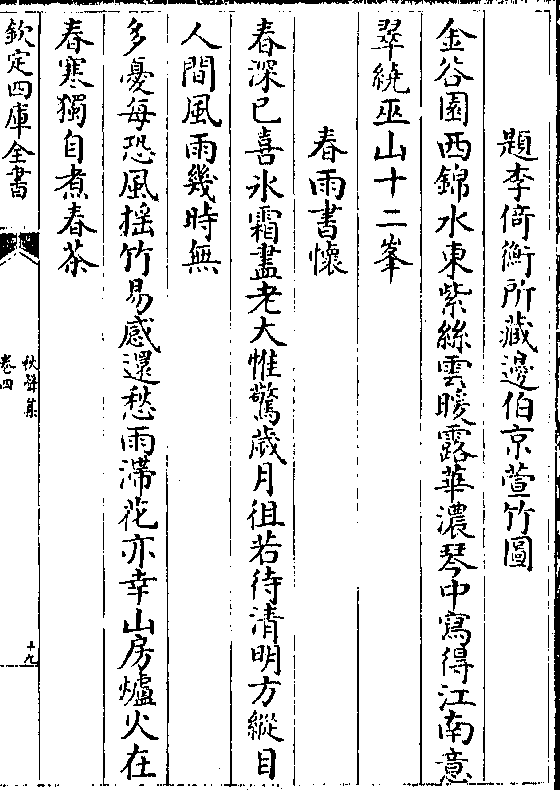 題李倚衡所藏邊伯京萱竹圖
金谷園西錦水東紫絲雲暖露華濃琴中寫得江南意
翠繞巫山十二峯
春雨書懷
春深已喜氷霜盡老大惟驚歳月徂若待清明方縱目
人間風雨幾時無
多憂每恐風揺竹易感還愁雨滯花亦幸山房爐火在
春寒獨自煮春茶
欽定四庫全書
秋聲集
卷四
十九